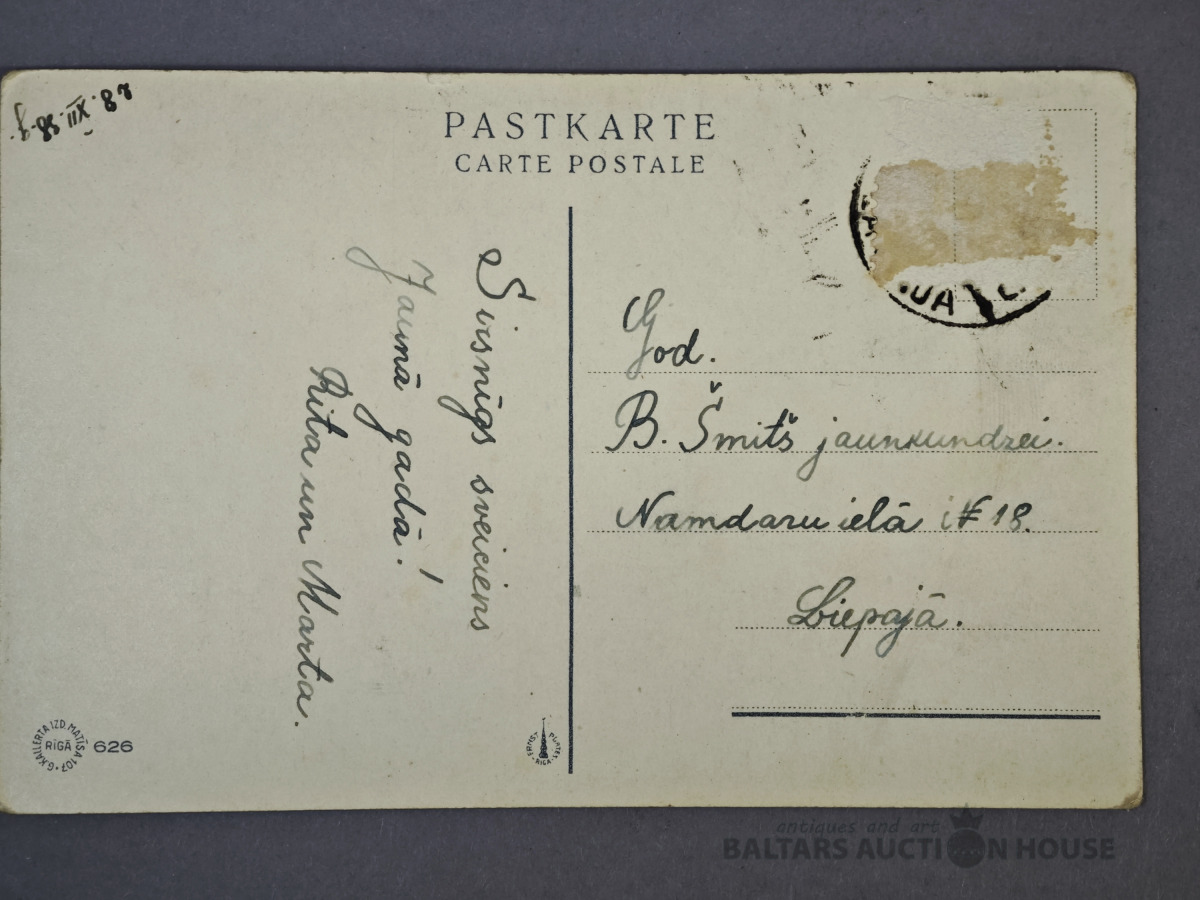 PASTKARTE
CARTE POSTALE
Sirsnīgs sveiciens
Jaunā gadā!
Rita un Marta.
God.
B. Šmitš jaunkundzei.
Namdaru ielā № 18.
Liepajā.
G.KALLERTA IZD. MATĪSA 107
RĪGĀ
626
ERNST PLATES
RIGA
antiques and art
BALTARS AUCTION HOUSE